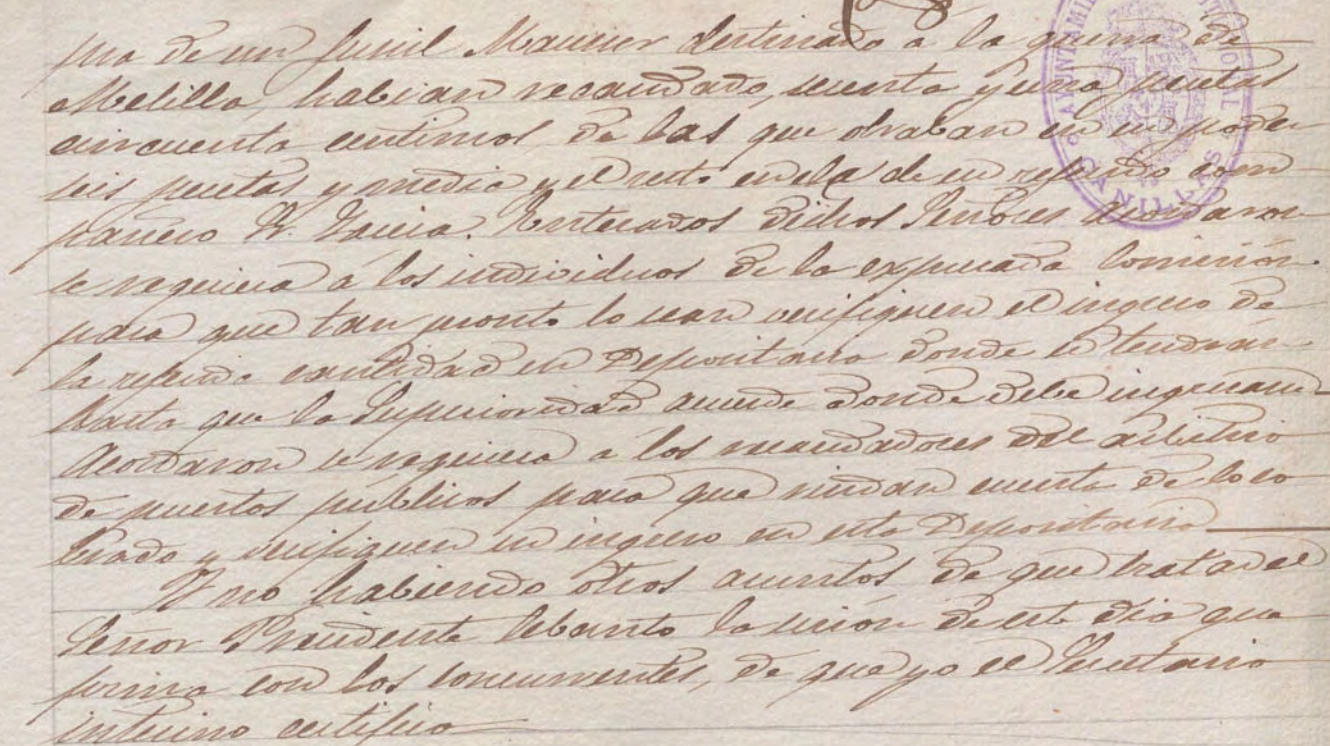 pra de un fusil Mauser destinado a la guerra de
Melilla, habian recaudado, sesenta y una pesetas
cincuenta centimos de las que obraban en su poder
seis pesetas y media y el resto en el de su referido com
pañero Sr. Garcia. Enterados dichos Señores acordaron
se requiera a los individuos de la expresada Comisión
para que tan pronto lo sean verifiquen el ingreso de
la referida cantidad en Depositaria donde se tendrán
hasta que la Superioridad acuerde donde debe ingresarse
Acordaron se requiera a los recaudadores del arbitrio
de puestos publicos para que rindan cuenta de lo co
brado y verifiquen su ingreso en esta Depositaria
Y no habiendo otros asuntos de que tratar el
Señor Presidente lebanto la sesión de este dia que
firma con los concurrentes, de que yo el Secretario
interino certifico
AYUNTAMIENTO CONSTITUCIONAL
CANILLAS